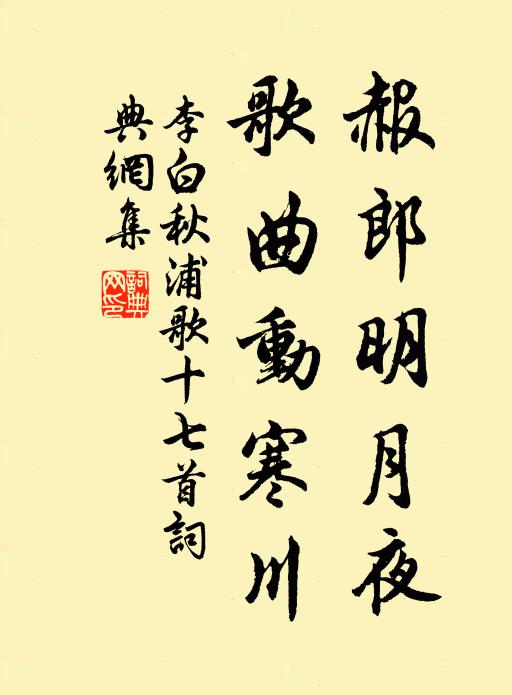 赧郎明月夜
歌曲動寒川
李白秋浦歌十七首詞
典網集
詞典
网印